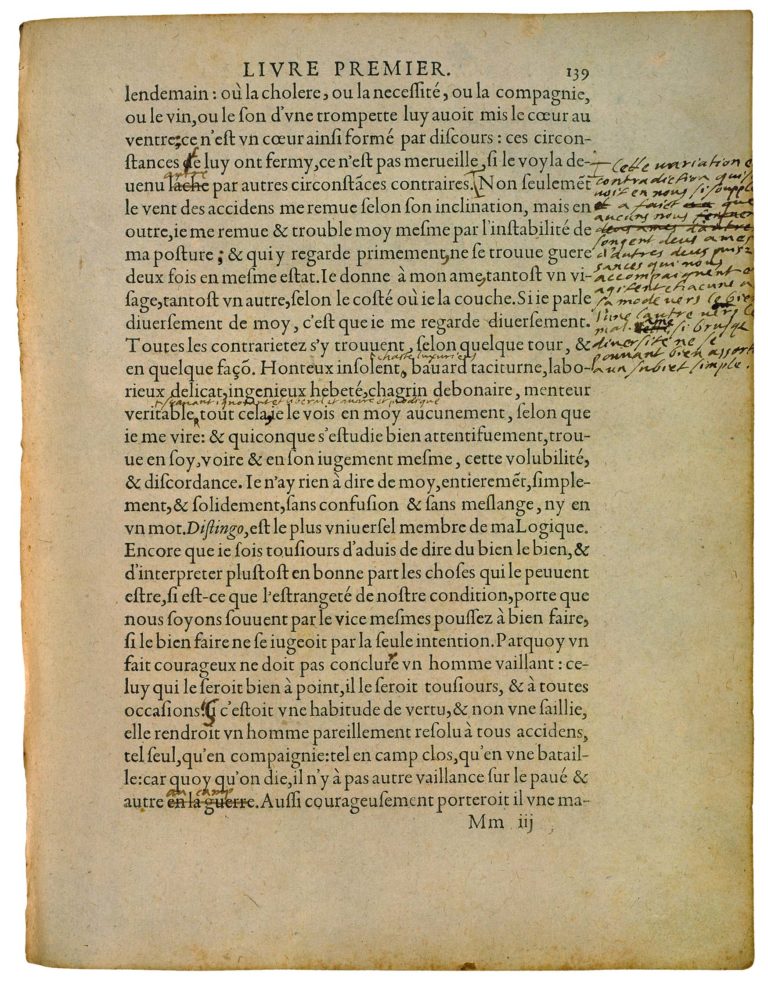 LIVRE PREMIER. 139
lendemain : où la cholere, ou la neceſſité, ou la compagnie,
ou le vin, ou le ſon d'vne trompette luy auoit mis le cœur au
ventre: ce n'eſt vn cœur ainſi formé par diſcours : ces circon-
ſtances le luy ont fermy, ce n'eſt pas merueille, ſi le voyla de-
autre
uenu lâche par autres circonſtāces contraires. Non ſeulemēt
le vent des accidens me remue ſelon ſon inclination, mais en
outre, ie me remue & trouble moy meſme par l'inſtabilité de
ma poſture ; & qui y regarde primement, ne ſe trouue guere
deux fois en meſme eſtat. Ie donne à mon ame, tantoſt vn vi-
ſage, tantoſt vn autre, ſelon le coſté où ie la couche. Si ie parle
diuerſement de moy, c'eſt que ie me regarde diuerſement.
Toutes les contrarietez s'y trouuent, ſelon quelque tour, &
chaste luxurieus
en quelque façō. Honteux inſolent, bauard taciturne, labo-
rieux delicat, ingenieux hebeté, chagrin debonaire, menteur
sçauant ignorant et liberal et auare et prodigue
veritable, tout cela, ie le vois en moy aucunement, ſelon que
ie me vire: & quiconque s'eſtudie bien attentifuement, trou-
ue en ſoy, voire & en ſon iugement meſme, cette volubilité,
& diſcordance. Ie n'ay rien à dire de moy, entieremēt, ſimple-
ment, & ſolidement, ſans confuſion & ſans meſlange, ny en
vn mot. Diſtingo, eſt le plus vniuerſel membre de ma Logique.
Encore que ie ſois touſiours d'aduis de dire du bien le bien, &
d'interpreter pluſtoſt en bonne part les choſes qui le peuuent
eſtre, ſi eſt-ce que l'eſtrangeté de noſtre condition, porte que
nous ſoyons ſouuent par le vice meſmes pouſſez à bien faire,
ſi le bien faire ne ſe iugeoit par la ſeule intention. Parquoy vn
fait courageux ne doit pas conclure vn homme vaillant : ce-
luy qui le ſeroit bien à point, il le ſeroit touſiours, & à toutes
occaſions. Si c'eſtoit vne habitude de vertu, & non vne ſaillie,
elle rendroit vn homme pareillement reſolu à tous accidens,
tel ſeul, qu'en compaignie: tel en camp clos, qu'en vne batail-
le: car quoy qu'on die, il n'y à pas autre vaillance ſur le paué &
au camp
autre en la guerre. Auſſi courageuſement porteroit il vne ma-
Mm iij
Cette uariation e
contradiction qui se
uoit en nous si souple
a faict que
aucuns nous
songent deus ames
d'autres deus puis
sances qui nous
accompaignent e
agitent chacune a
sa mode vers le bien
l'une l'autre vers le
mal si brusqe
diuersité ne se
pouuant bien assortir
a un subiet simple.